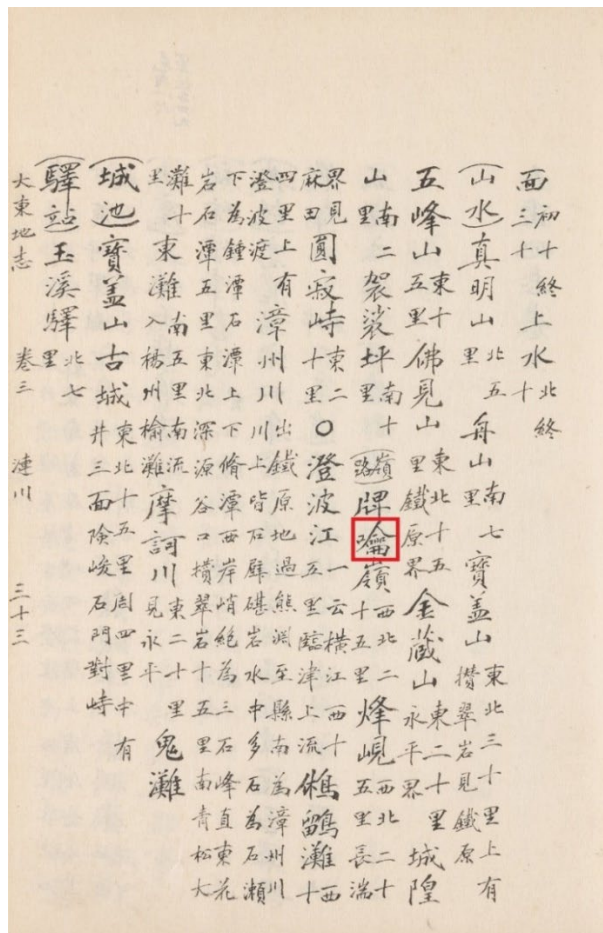 面初十終三十上水北終十
(山水)真明山北五里舟山南七里寶盖山東北三十里上有攢翠岩見鐵原
五峰山東十五里佛見山東北十五里鐵原界金蔵山東二十里永平界城隍
山南二里袈裟坪南十里(嶺路)牌嶺西北二十五里烽峴西北二十五里長湍
界見麻田圓寂峙東二十里○澄波江一云橫江西十五里臨津上流鵂鶹灘西十
四里上有澄波渡漳州川出鐵原地過熊淵至縣南為漳州川川上皆石壁磋岩水中多石為石瀨
下為鍾潭石潭上下脩潭西岸峭絶為三石峰直東花岩石潭五里東北深源谷口攢翠岩十五里南青松大
灘十里東灘南五里南流入楊州榆灘摩訶川東二十里見永平鬼灘
(城池)寶盖山古城東北十五里周四里中有井三面險峻石門對峙
(驛站)玉溪驛北七里
大東地志 卷三 漣川 三十三